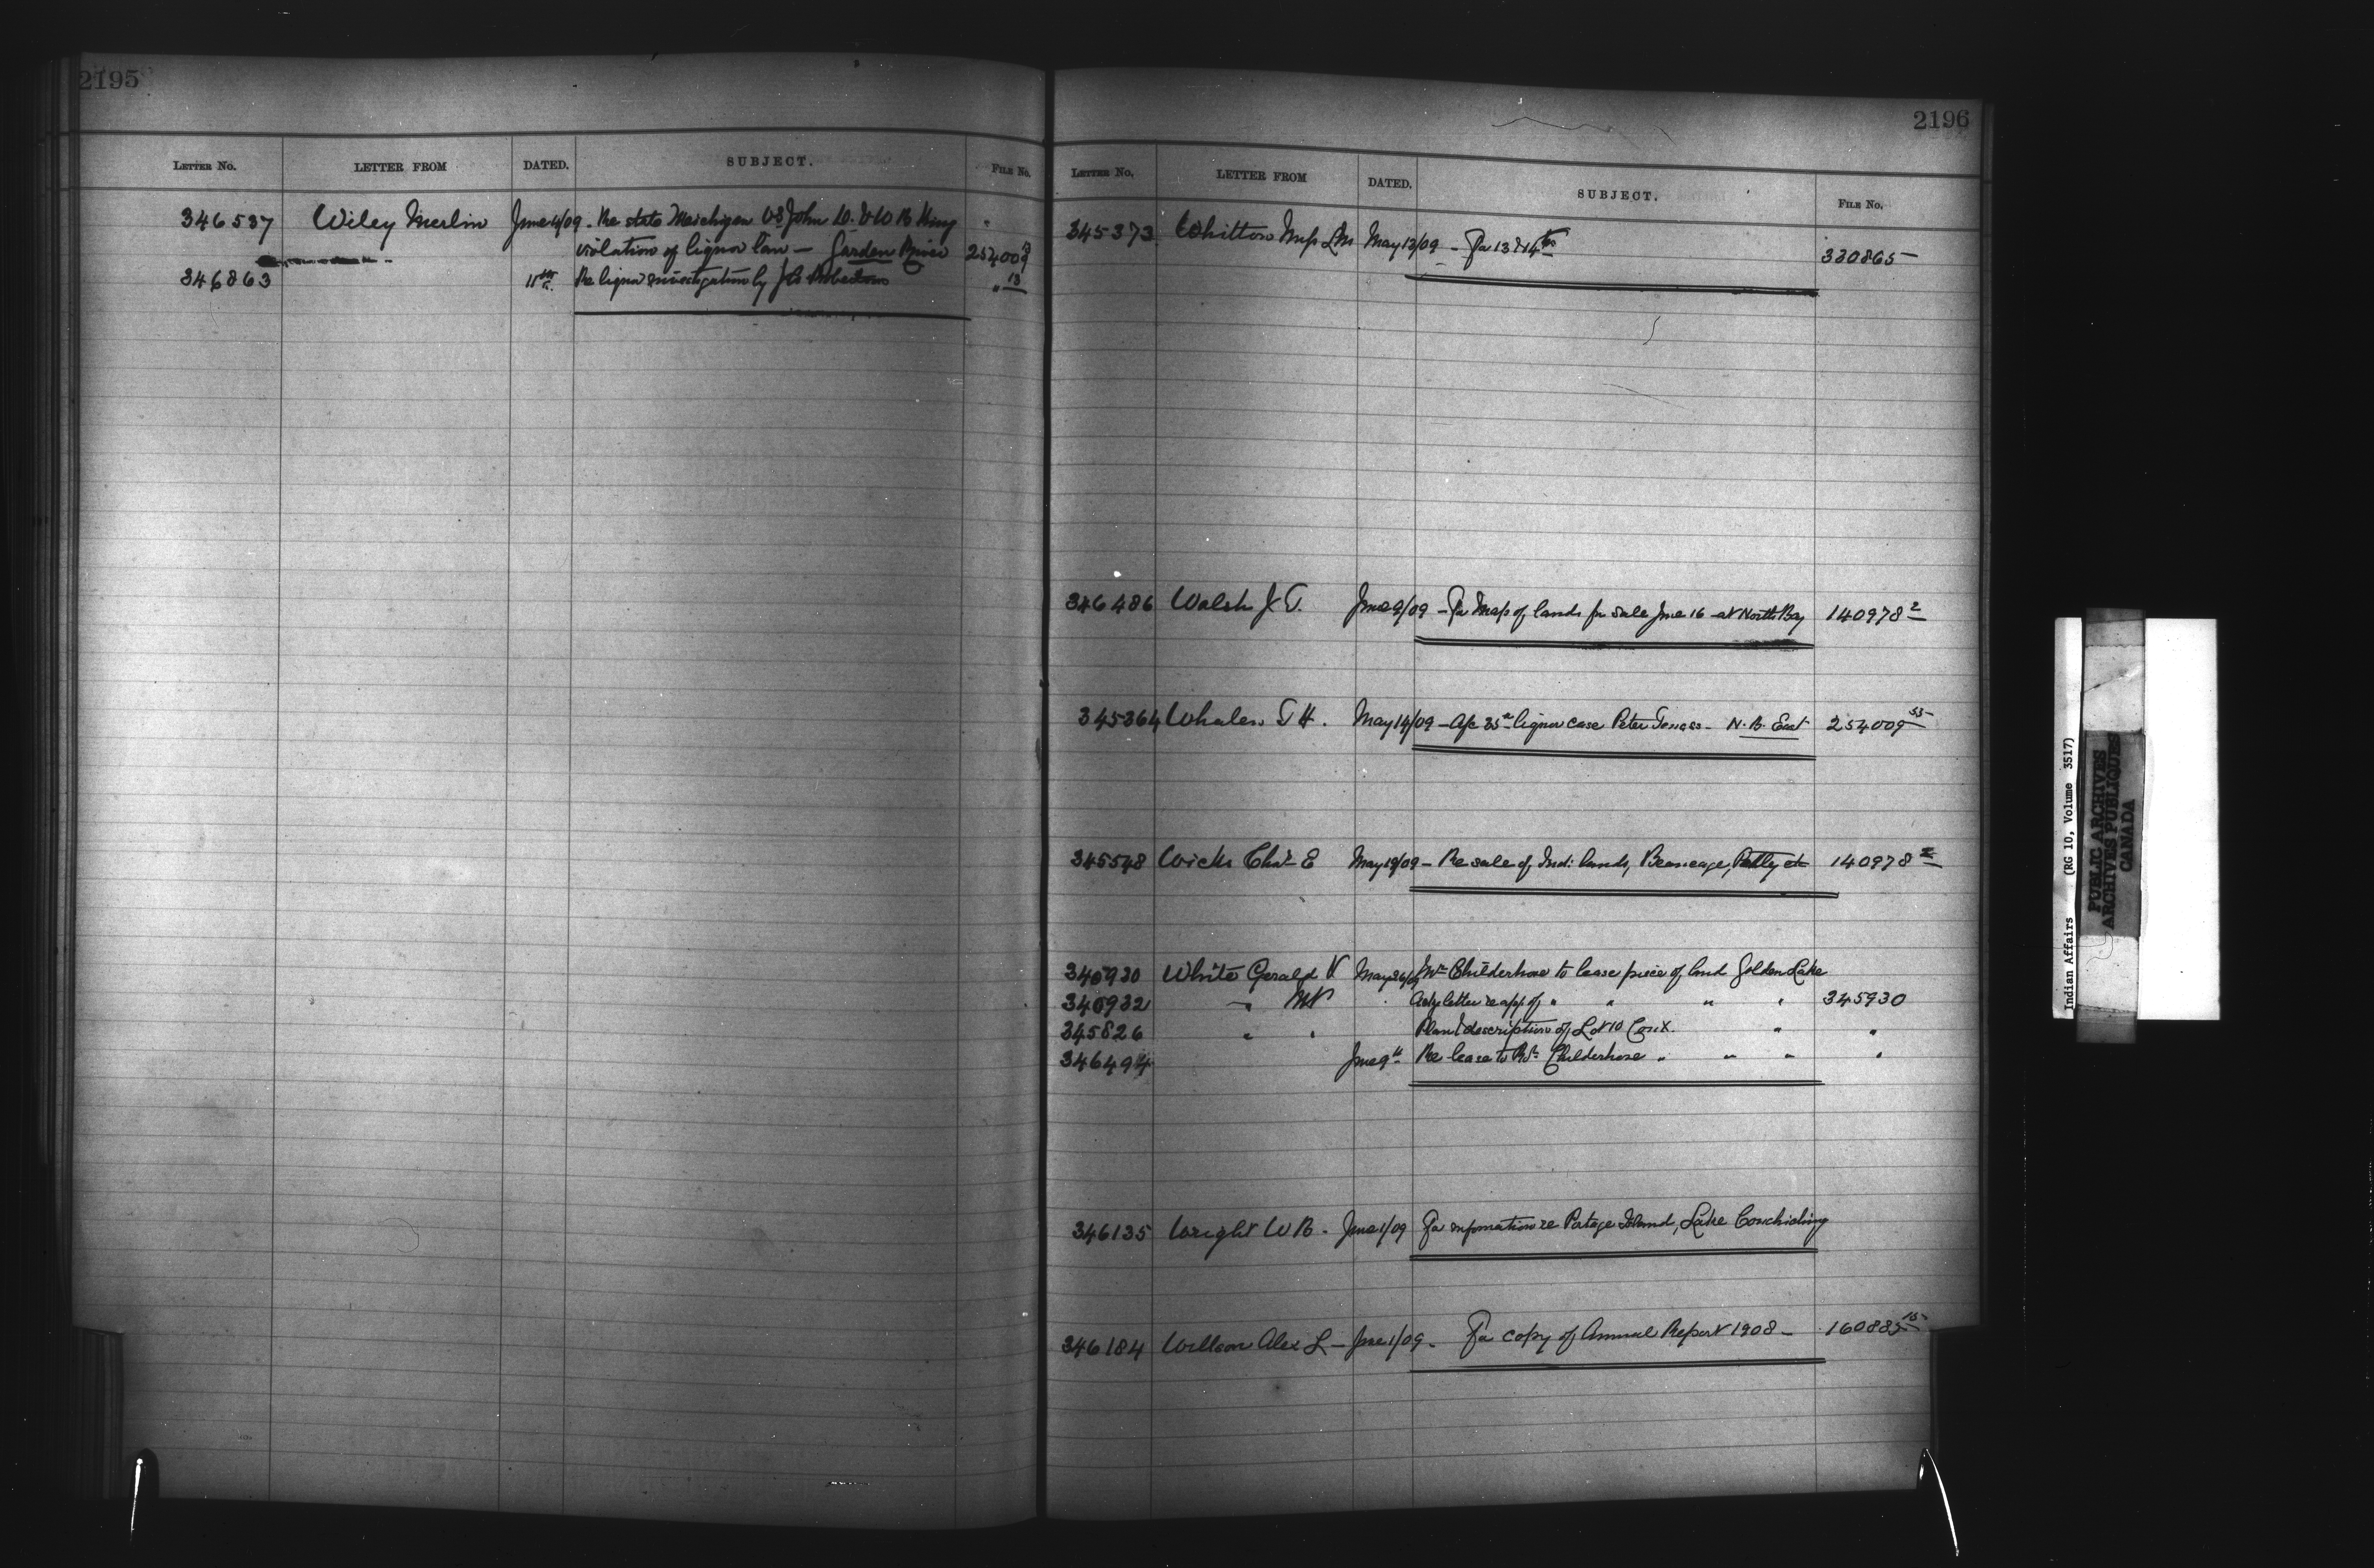 2195
LETTER NO. LETTER FROM DATED. SUBJECT. FILE No.
346537 Wiley Merlin June 4/09 - Re state Maichigan vs John D. & W B King
violation of liquor law - Garden River 254009
346863 11th Re liquor investigation by " 13
2196
LETTER NO. LETTER FROM DATED. SUBJECT. FILE No.
345373 Whitton May 13/09 - Fa 13 & 14 330865
346486 Walsh J. T. June 9/09 - Fa Map of lands for sale June 16 - at North Bay 140978 2
345364 Whalen T H. May 14/09 - liquor case Peter - N. B. East 254009 53
345548 Wicks Chas E May 19/09 - Re sale of Indn lands, Beaucage, Pedley etc 140978 2
345930 White Gerald V May 26/09 Mr Childerhose to lease piece of land Golden Lake
345932 " MP letter re app of " " " " 345930
345826 " " Plan & description of Lot 10 Con X. " "
346494 June 9th Re lease to Childerhose " " " "
346135 Wright W B - June 1/09 Fa information re Potage Island, Lake Couchiching
346184 Willson Alex L - June 1/09 - Fa copy of Annual Report 1908 - 160885 15
Indian Affairs (RG 10, Volume 3517)
PUBLIC ARCHIVES
ARCHIVES PUBLIQUES
CANADA